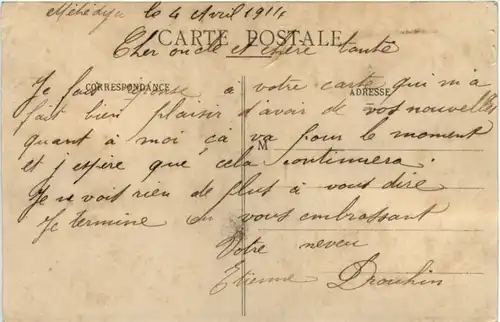 Méhédya le 4 Avril 1914
CARTE POSTALE
Cher oncle et chère tante
CORRESPONDANCE
ADRESSE
Je fais réponse a votre carte qui m'a
fait bien plaisir d'avoir de vos nouvelles
quant à moi ça va pour le moment
M
et j'espère que cela continuera.
Je ne voit rien de plus à vous dire
Je termine en vous embrassant
Votre neveu
Etienne Drouhin